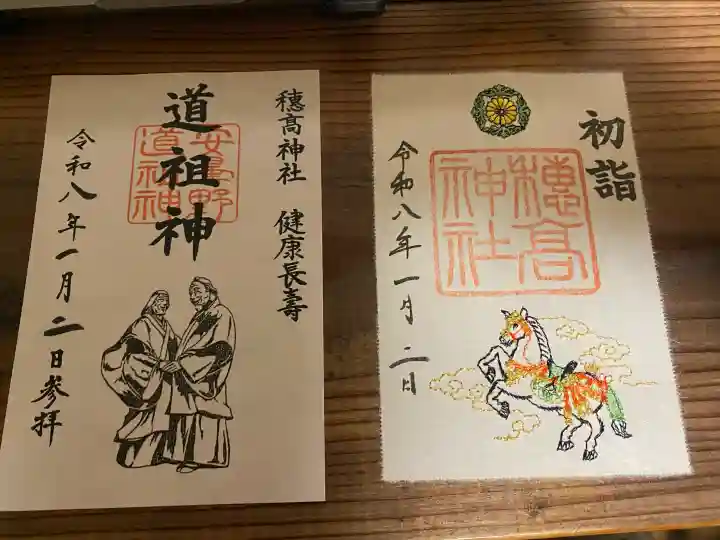 穂高神社 健康長壽
道祖神
安曇野
道祖神
令和八年一月二日参拝
初詣
穂高
神社
令和八年一月二日